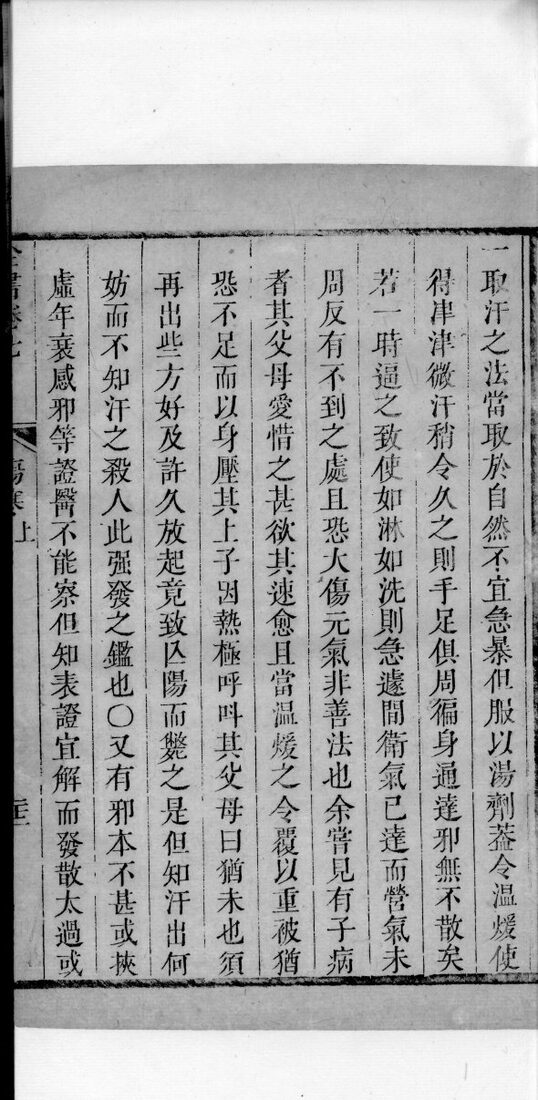 一取汗之法當取於自然不宜急暴但服以湯劑葢令温煖使
得津津微汗稍令久之則手足俱周徧身通達邪無不散矣
若一時逼之致使如淋如洗則急遽間衛氣已達而營氣未
周反有不到之處且恐大傷元氣非善法也余嘗見有子病
者其父母愛惜之甚欲其速愈且當温煖之令覆以重被猶
恐不足而以身壓其上子因熱極呼呌其父母曰猶未也須
再出些方好及許久放起竟致亾陽而斃之是但知汗出何
妨而不知汗之殺人此强發之鑑也〇又有邪本不甚或挾
虛年衰感邪等證醫不能察但知表證宜解而發散太過或
全書卷七 傷寒上 三十